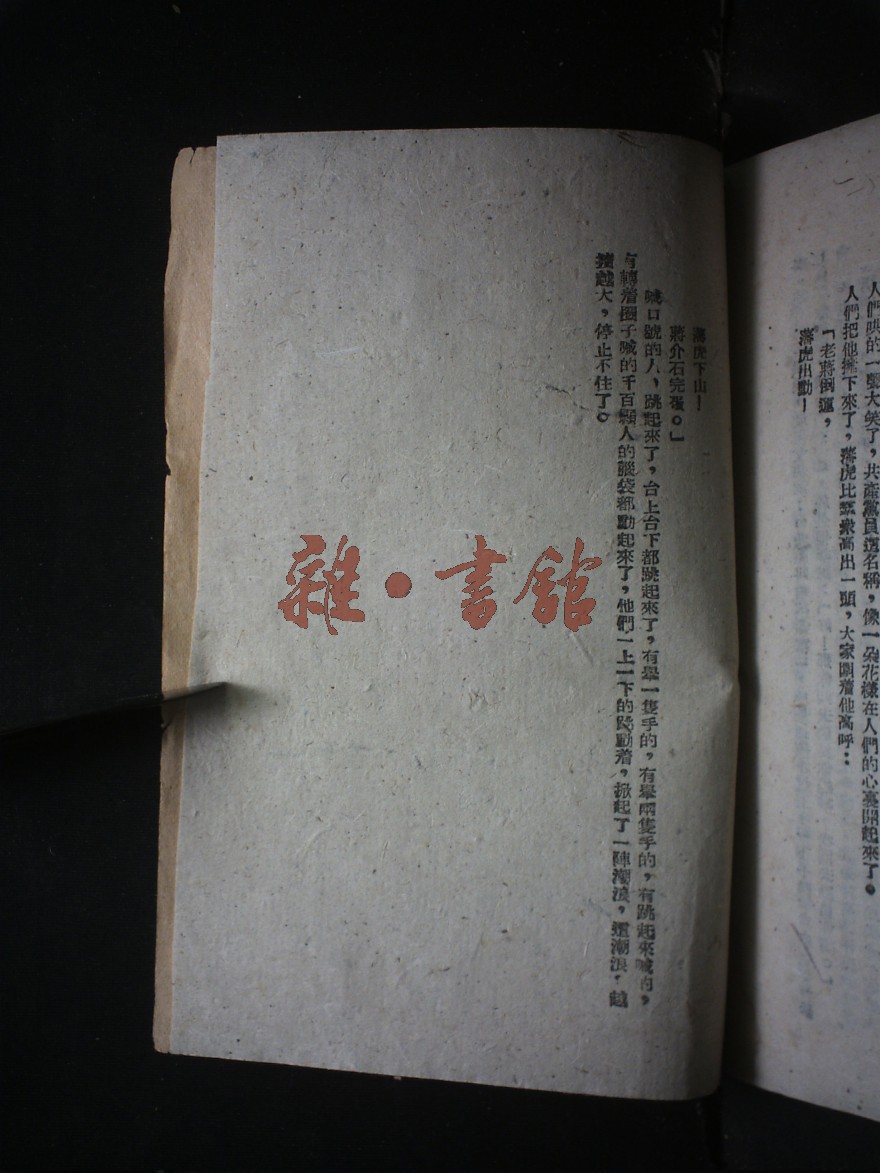 人們哄的一聲大笑了，共產黨員這名稱，像一朵花樣在人們的心裏開起來了。
人們把他擁下來了，蔣虎比羣衆高出一頭，大家圍着他高呼：
「老蔣倒運，
蔣虎出動！
蔣虎下山！
蔣介石完蛋。」
喊口號的人，跳起來了，台上台下都跳起來了，有舉一隻手的，有舉兩隻手的，有跳起來喊的，
有轉着圈子喊的千百顆人的腦袋都動起來了，他們一上一下的跳動着，掀起了一陣潮浪，這潮浪，越
越大，停止不住了。
雜·書舘